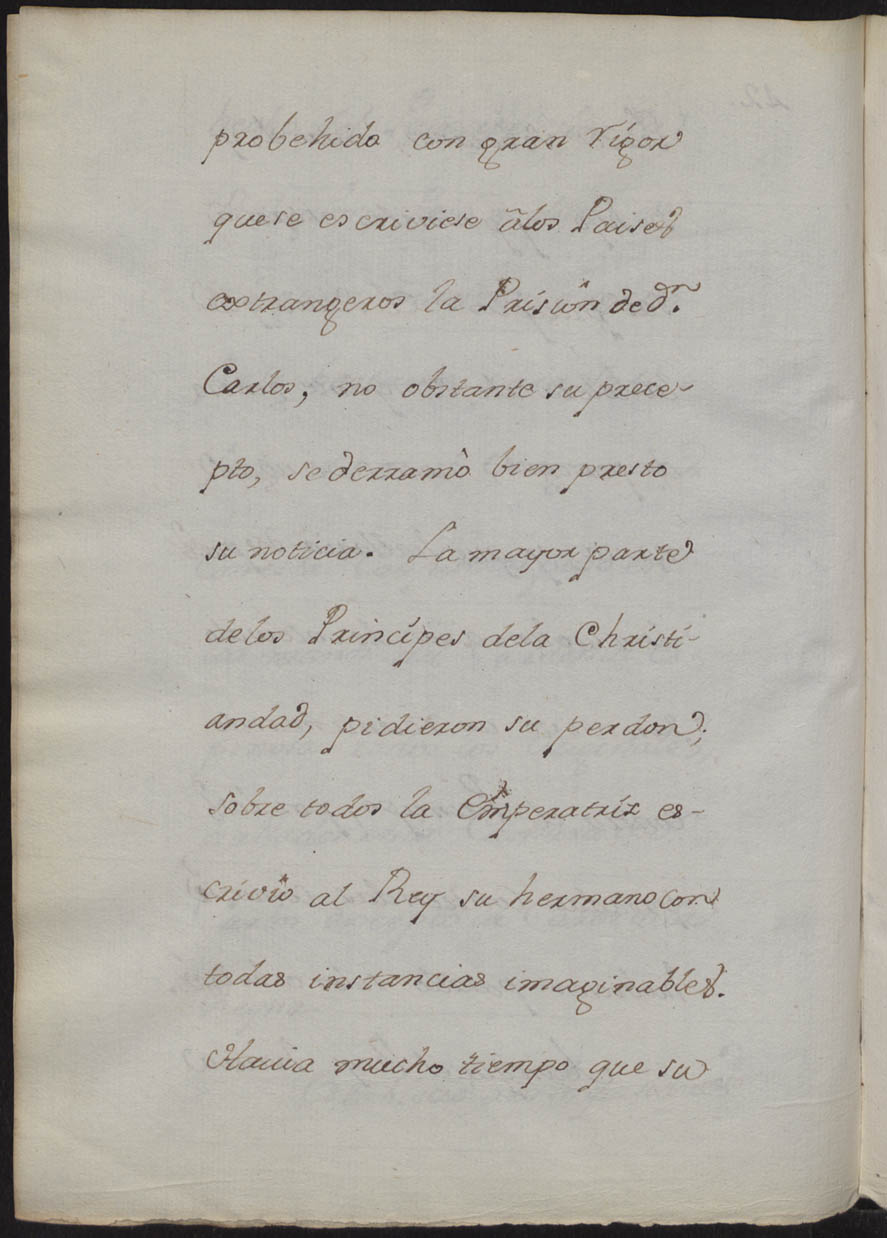 probehido con gran rigor
quese escriviese âlos Paises
extrangeros la Prisiôn de dn.
Carlos, no obstante su prece-
pto, se derramò bien presto
su noticia. La mayor parte
delos Principes dela Christi-
andad, pidieron su perdon;
sobre todos la Emperatriz es-
criviò al Rey su hermano con
todas instancias imaginables.
Havia mucho tiempo que su